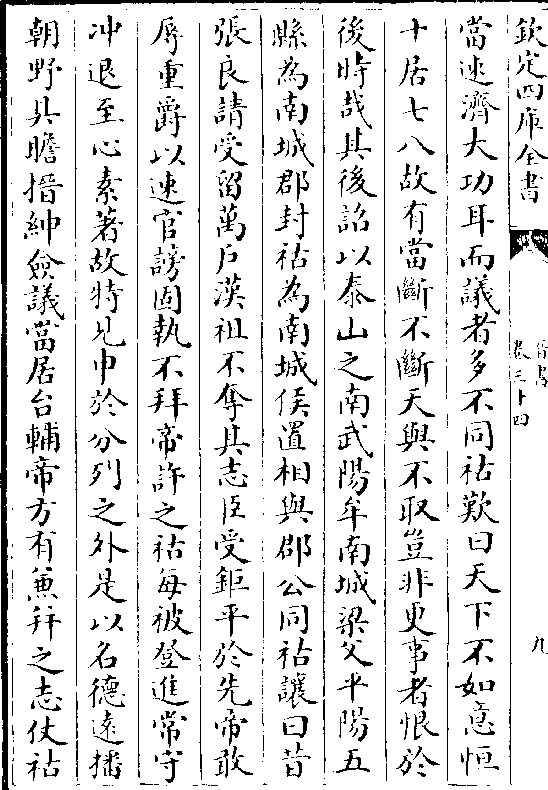 欽定四庫全書
晉書
卷三十四
九
當速濟大功耳而議者多不同祜歎曰天下不如意恒
十居七八故有當斷不斷天與不取豈非更事者恨於
後時哉其後詔以泰山之南武陽牟南城梁父平陽五
縣為南城郡封祜為南城侯置相與郡公同祜讓曰昔
張良請受留萬戶漢祖不奪其志臣受鉅平於先帝敢
辱重爵以速官謗固執不拜帝許之祜每被登進常守
冲退至心素著故特見申於分列之外是以名德逺播
朝野具瞻搢紳僉議當居台輔帝方有兼并之志仗祜